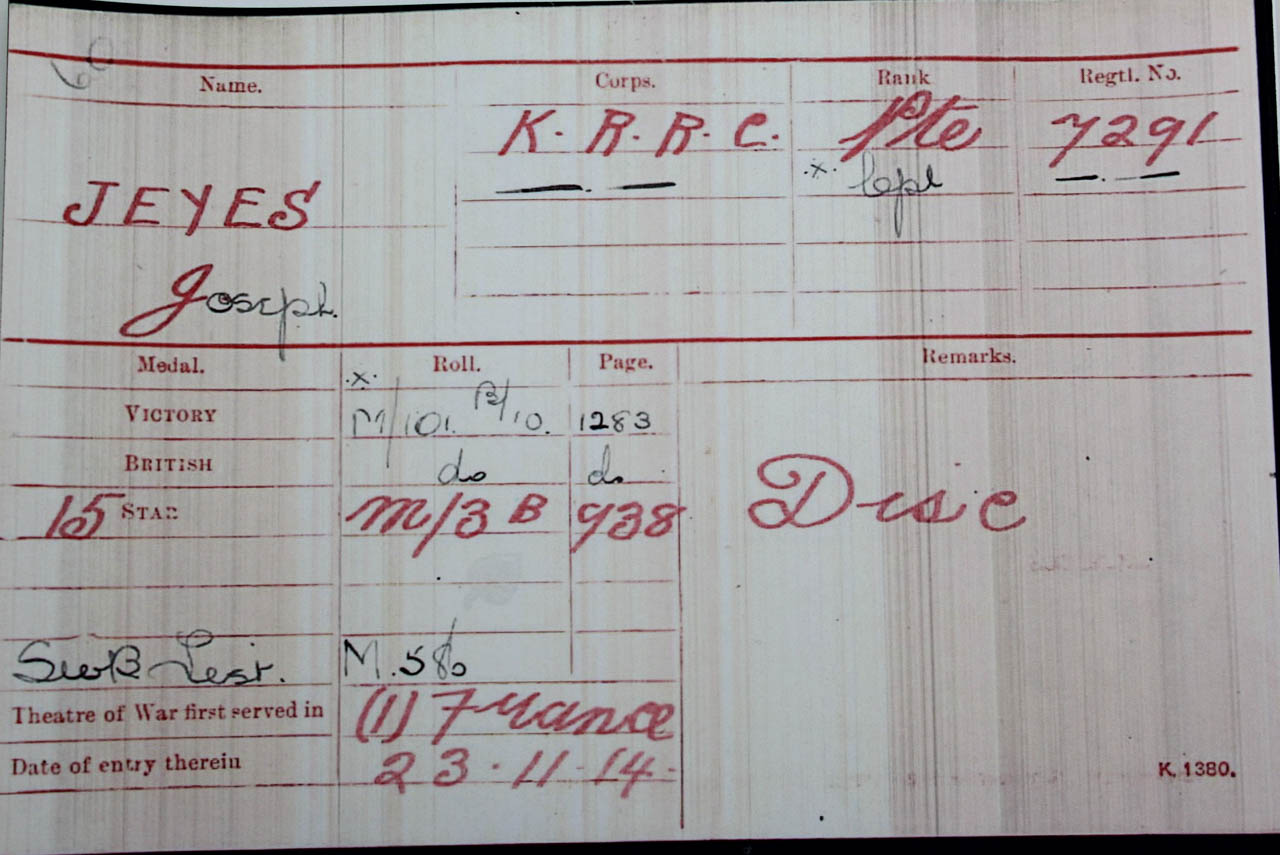 60
Name. Corps. Rank Regtl. No.
K. R. R. C. Pte 7291
JEYES —. — .x. Cpl —.—
Joseph.
Medal. Roll. Page. Remarks.
.x.
VICTORY M/101. B/10. 1283
BRITISH do do
15 STAR M/3 B 938 Disc
SWB List. M.58
Theatre of War first served in (1) France
Date of entry therein 23.11.14.
K. 1380.